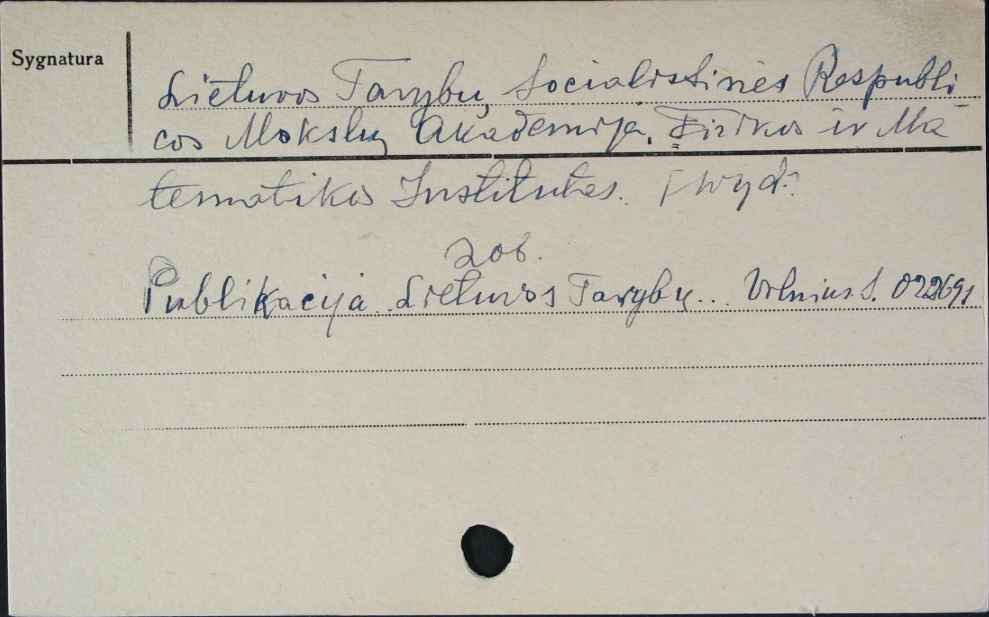 Sygnatura
Lietuvos Tarybų Socialistinės Respubli
cos Mokslų Akademija. Fizikos ir Ma
tematikos Institutas. [wyd.]
zob.
Publikacija Lietuvos Tarybų... Vilnius S. 022691